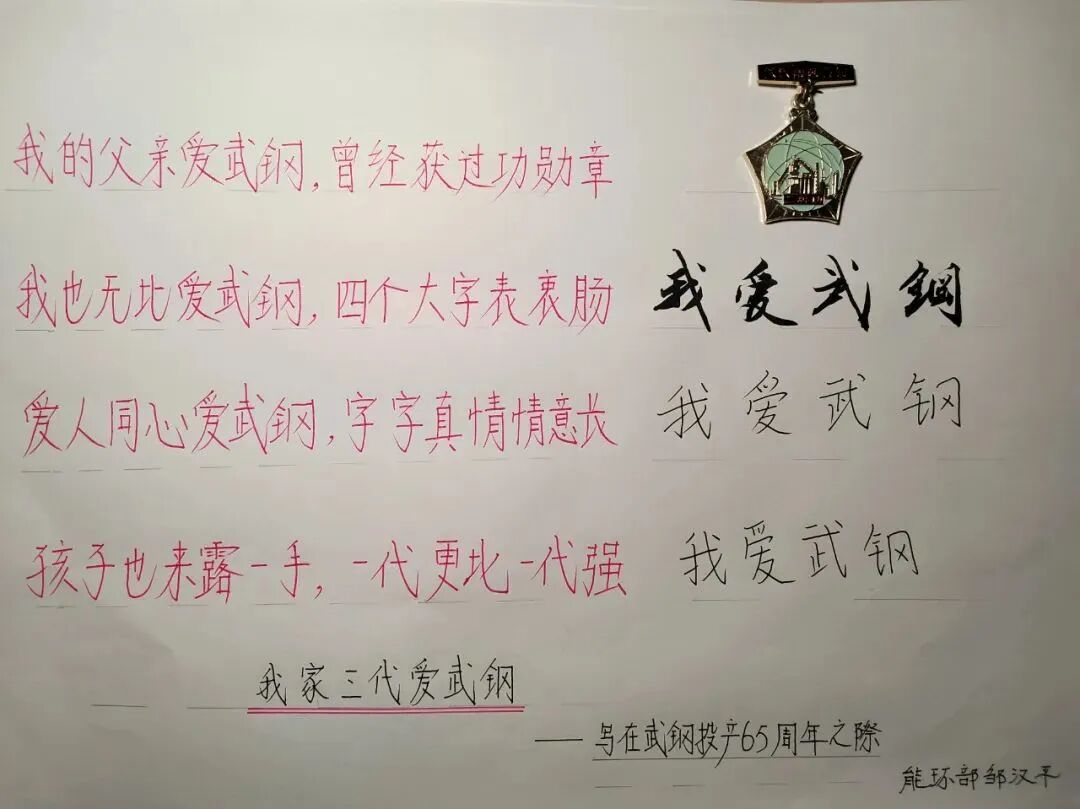 我的父亲爱武钢，曾经获过功勋章
我也无比爱武钢，四个大字表衷肠 我爱武鋼
爱人同心爱武钢，字字真情情意长 我爱武钢
孩子也来露一手，一代更比一代强 我爱武钢
我家三代爱武钢
——写在武钢投产65周年之际
能环部邹汉平